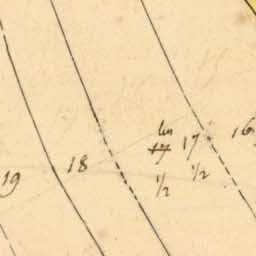 19
18
lin
17
1/2
17
1/2
16